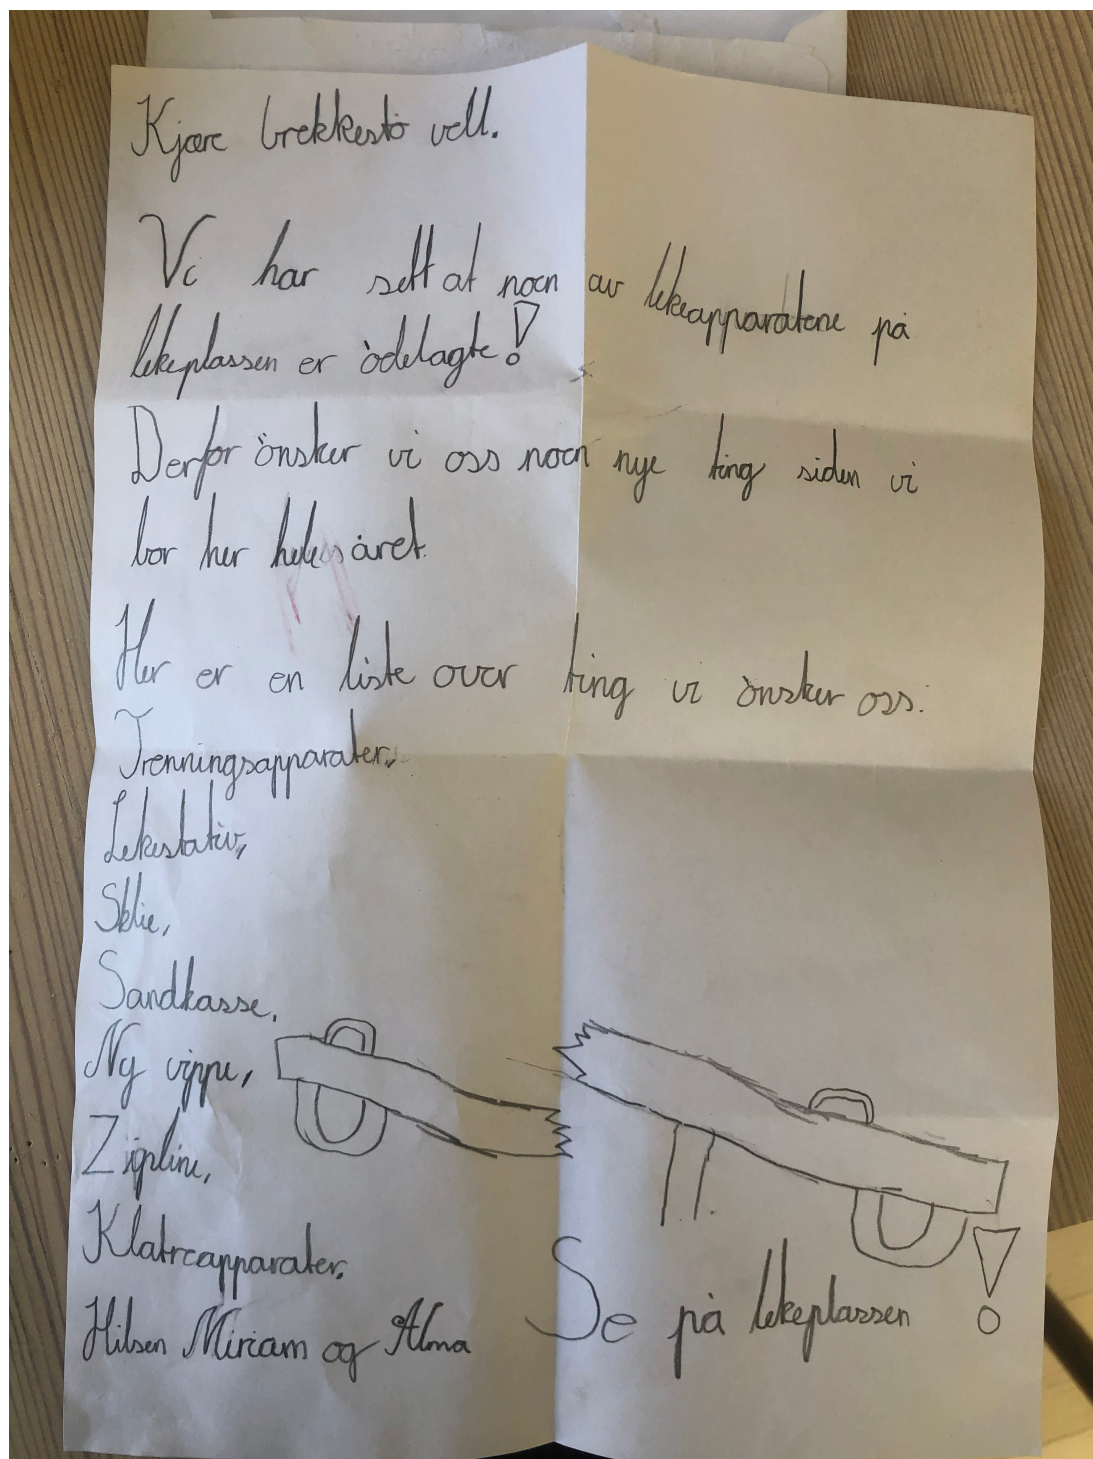 Kjære brekkestö vell.
Vi har sett at noen av lekeapparatene på
lekeplassen er ödelagte!
Derfor önsker vi oss noen nye ting siden vi
bor her hele året.
Her er en liste over ting vi önsker oss:
Trenningsapparater,
Lekestativ,
Sklie,
Sandkasse,
Ny vippe,
Zipline,
Klatreapparater,
Hilsen Miriam og Alma
Se på lekeplassen !